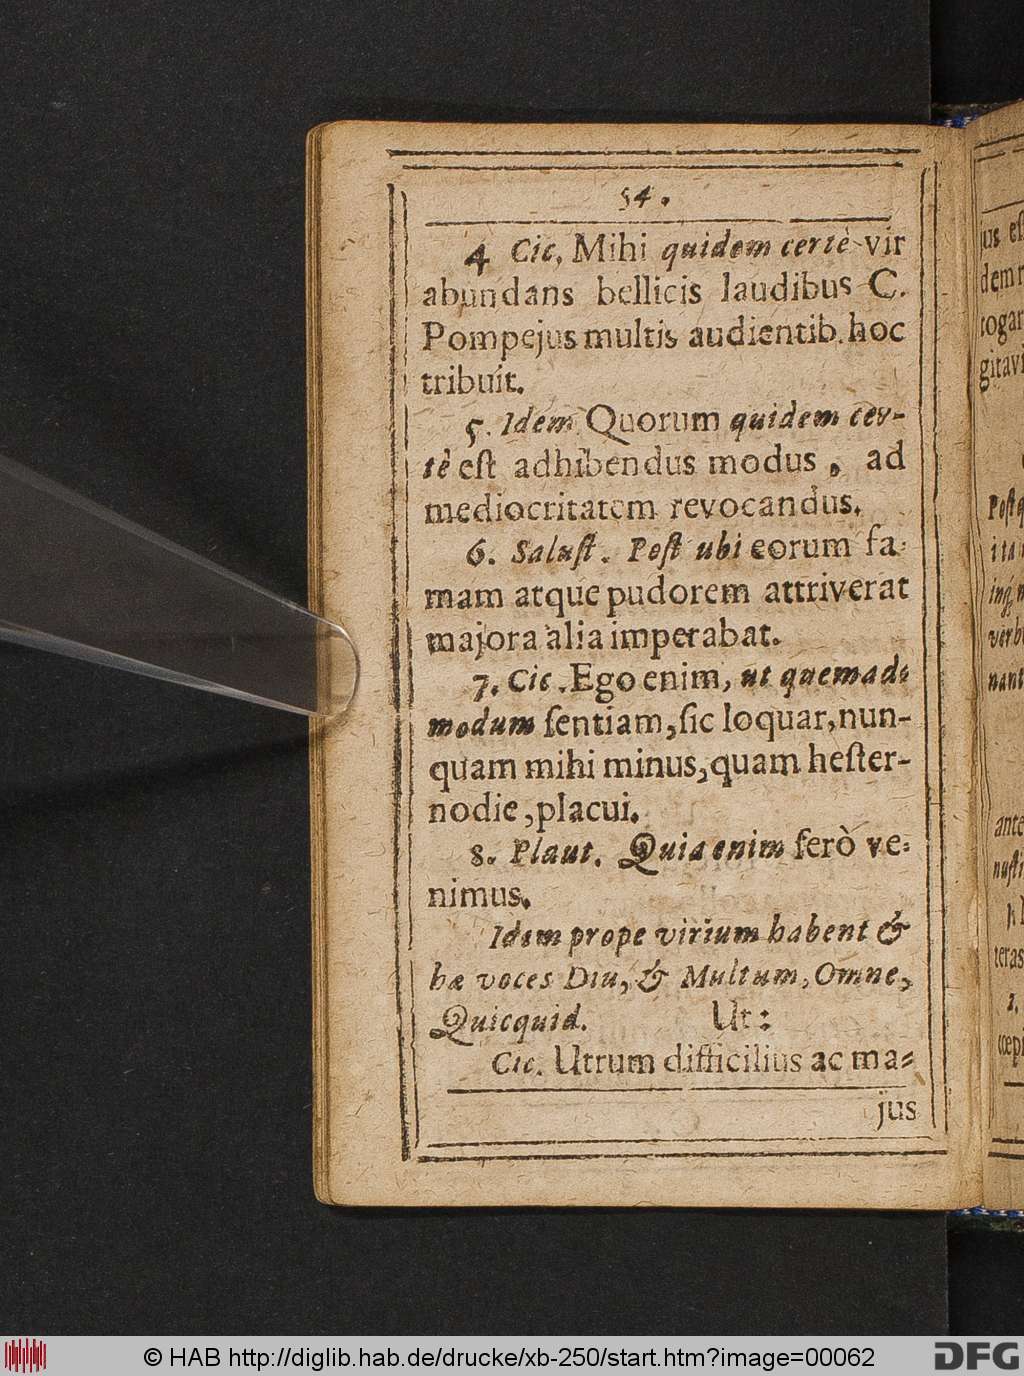 54.
4 Cic. Mihi quidem certè vir
abundans bellicis laudibus C.
Pompejus multis audientib. hoc
tribuit.
5. Idem Quorum quidem cer-
tè eſt adhibendus modus, ad
mediocritatem revocandus.
6. Saluſt. Poſt ubi eorum fa-
mam atque pudorem attriverat
majora alia imperabat.
7. Cic. Ego enim, ut quemad-
modum ſentiam, ſic loquar, nun-
quam mihi minus, quam heſter-
no die, placui.
8. Plaut. Quia enim ſerò ve-
nimus.
Idem prope virium habent &
hæ voces Diu, & Multum, Omne,
Quicquid. Ut:
Cic. Utrum difficilius ac ma-
jus
jus eſ
dem
rogar
gitavi
Poſtq
ita
verb
nant
ante
teras
1.
cœpi
© HAB http://diglib.hab.de/drucke/xb-250/start.htm?image=00062
DFG